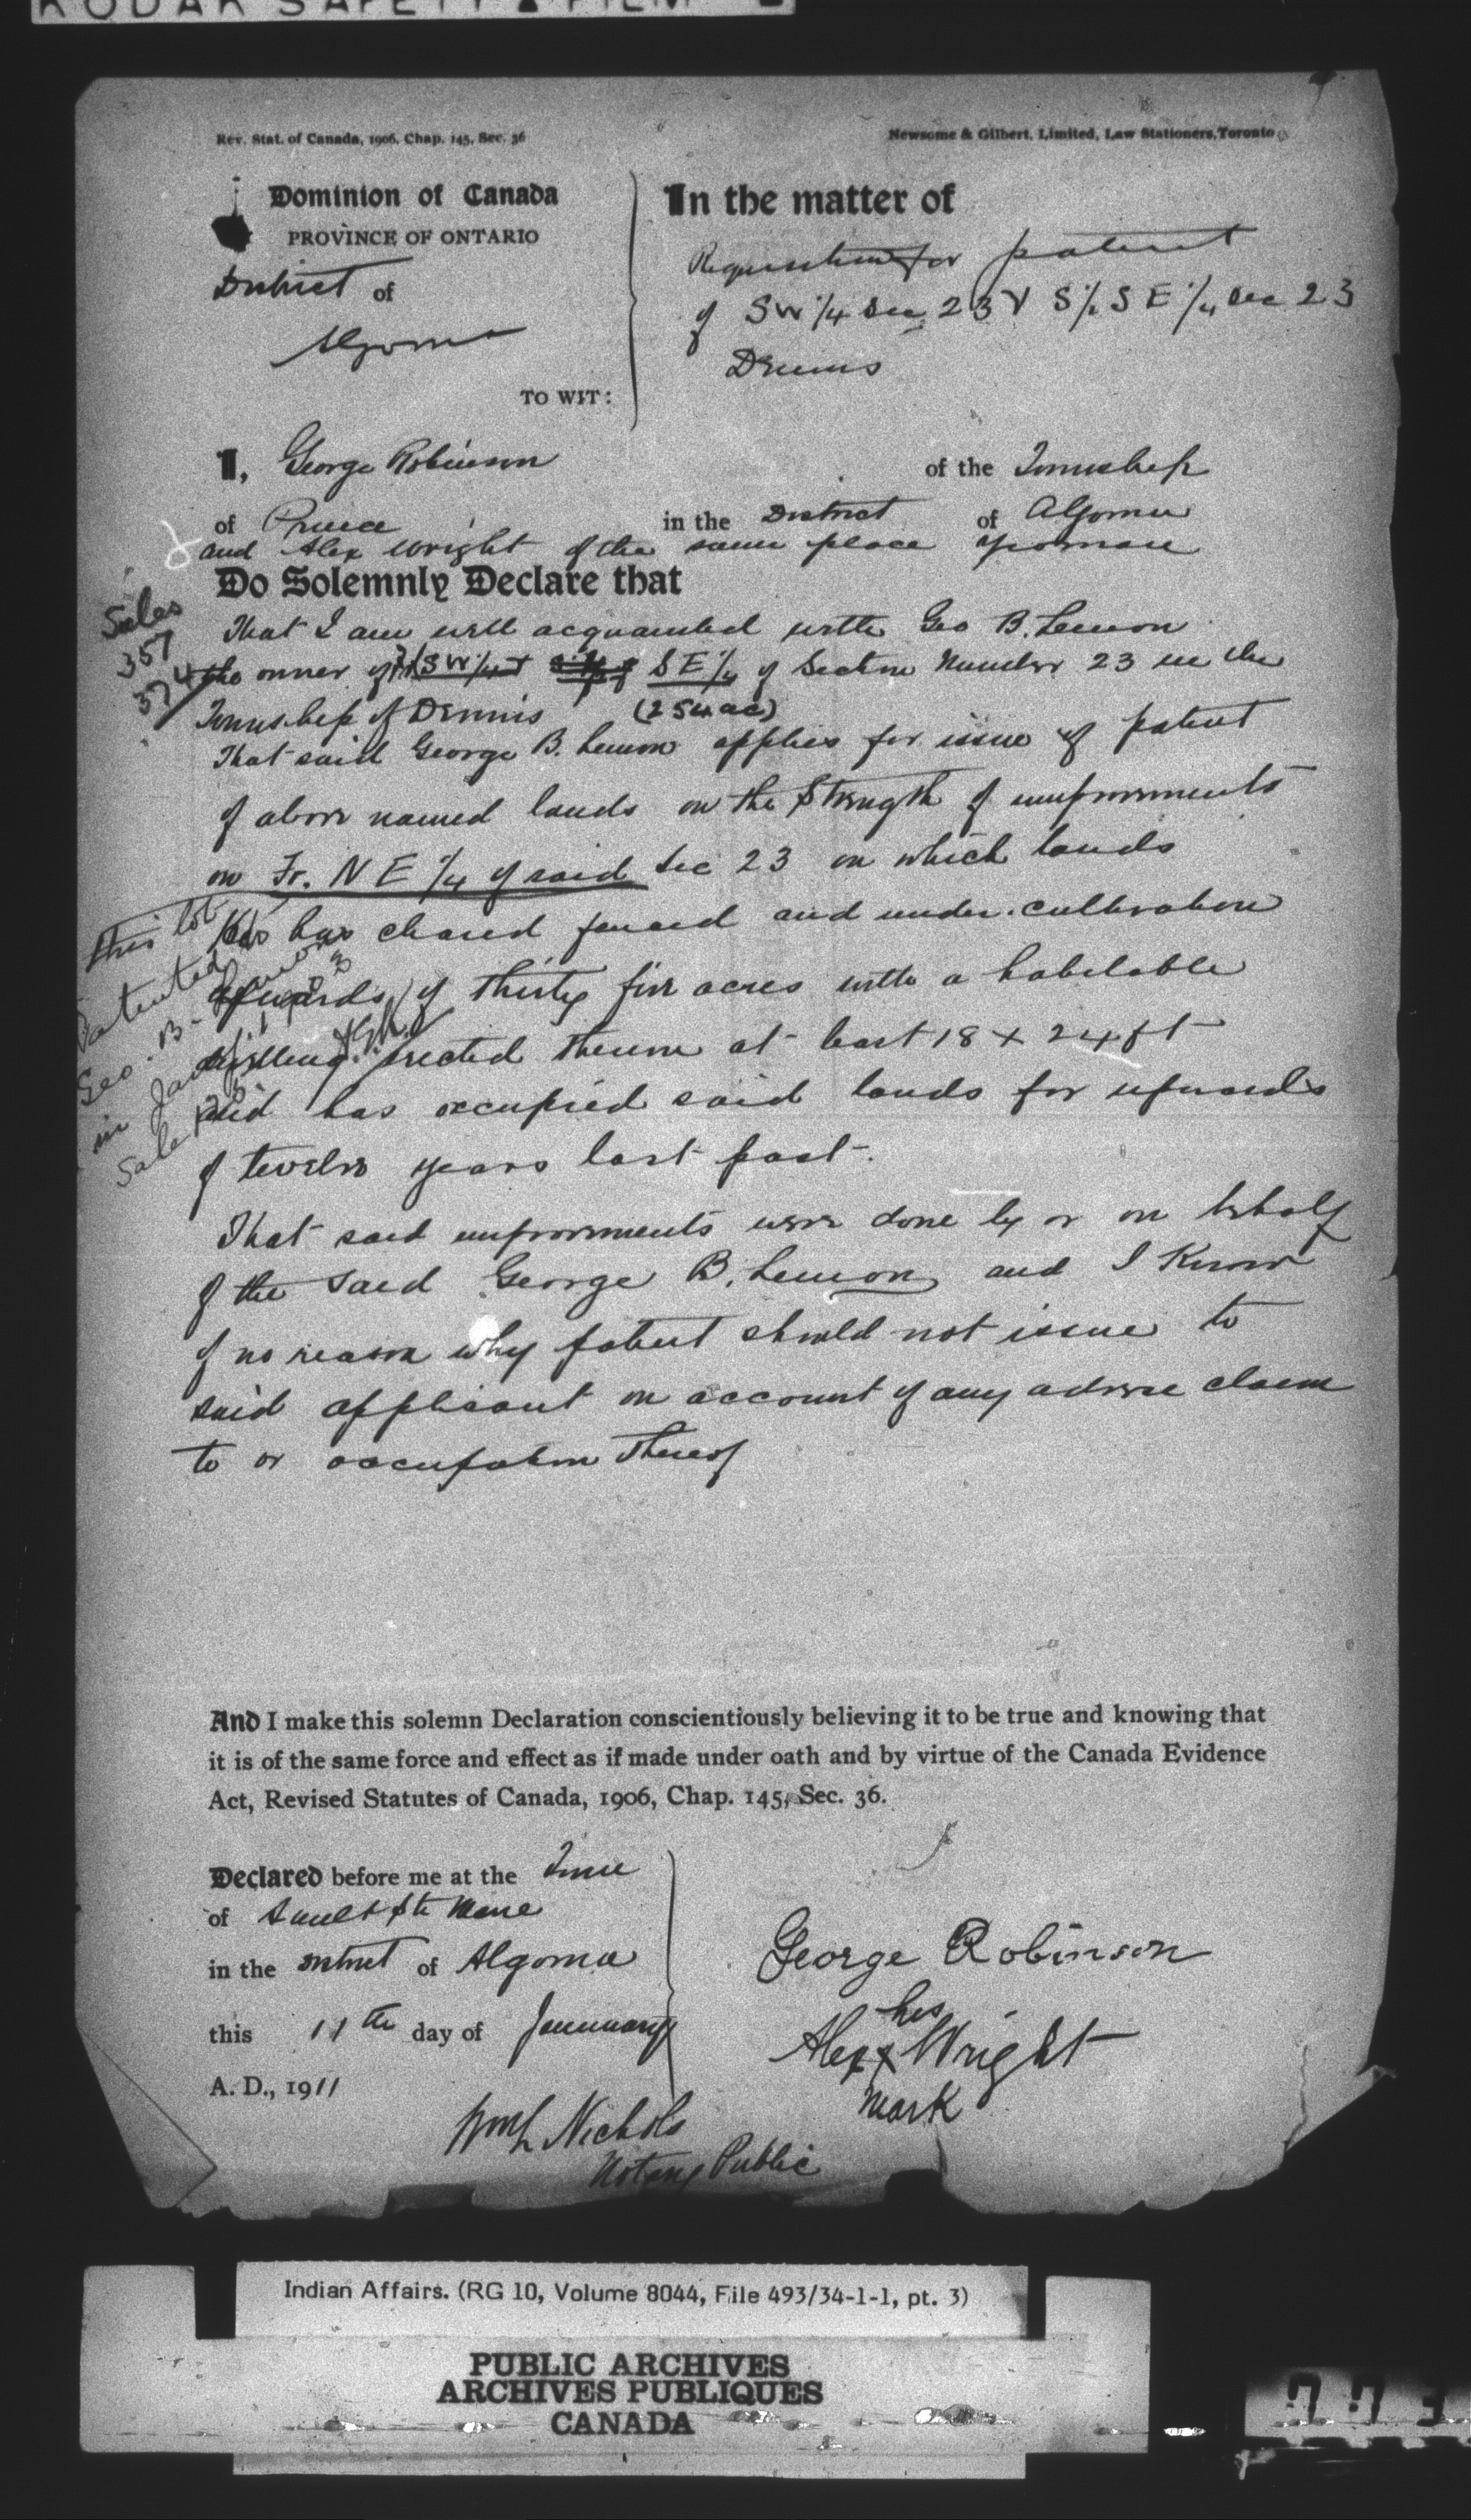 KODAK SAFETY FILM
Rev. Stat. of Canada, 1906, Chap. 145, Sec. 36
Newsome & Gilbert, Limited, Law Stationers, Toronto
Dominion of Canada
PROVINCE OF ONTARIO
District of
Algoma
TO WIT:
In the matter of
Requisition for patent
of SW 1/4 Sec 23 & S 1/2 S E 1/4 Sec 23
Dennis
I, George Robinson of the Township
of Prince in the District of Algoma
and Alex Wright of the same place yeoman
Do Solemnly Declare that
Sales
357
374
That I am well acquainted with Geo B. Lemon
the owner of SW 1/4 & S E 1/4 of Section Number 23 in the
Township of Dennis (254 ac)
That said George B. Lemon applies for issue of patent
of above named lands on the strength of improvements
on Fr. N E 1/4 of said Sec 23 on which lands
he has cleared fenced and under cultivation
upwards of thirty five acres with a habitable
dwelling erected thereon at least 18 x 24 ft
and has occupied said lands for upwards
of twelve years last past.
This lot
Patented
Geo. B. Lemon
in Jany
Sale
That said improvements were done by or on behalf
of the said George B. Lemon and I know
of no reason why patent should not issue to
said applicant on account of any adverse claim
to or occupation thereof
And I make this solemn Declaration conscientiously believing it to be true and knowing that
it is of the same force and effect as if made under oath and by virtue of the Canada Evidence
Act, Revised Statutes of Canada, 1906, Chap. 145, Sec. 36.
Declared before me at the Town
of Sault Ste Marie
in the District of Algoma
this 11th day of January
A. D., 1911
George Robinson
his
Alex x Wright
mark
Wm L Nichols
Notary Public
Indian Affairs. (RG 10, Volume 8044, File 493/34-1-1, pt. 3)
PUBLIC ARCHIVES
ARCHIVES PUBLIQUES
CANADA
773